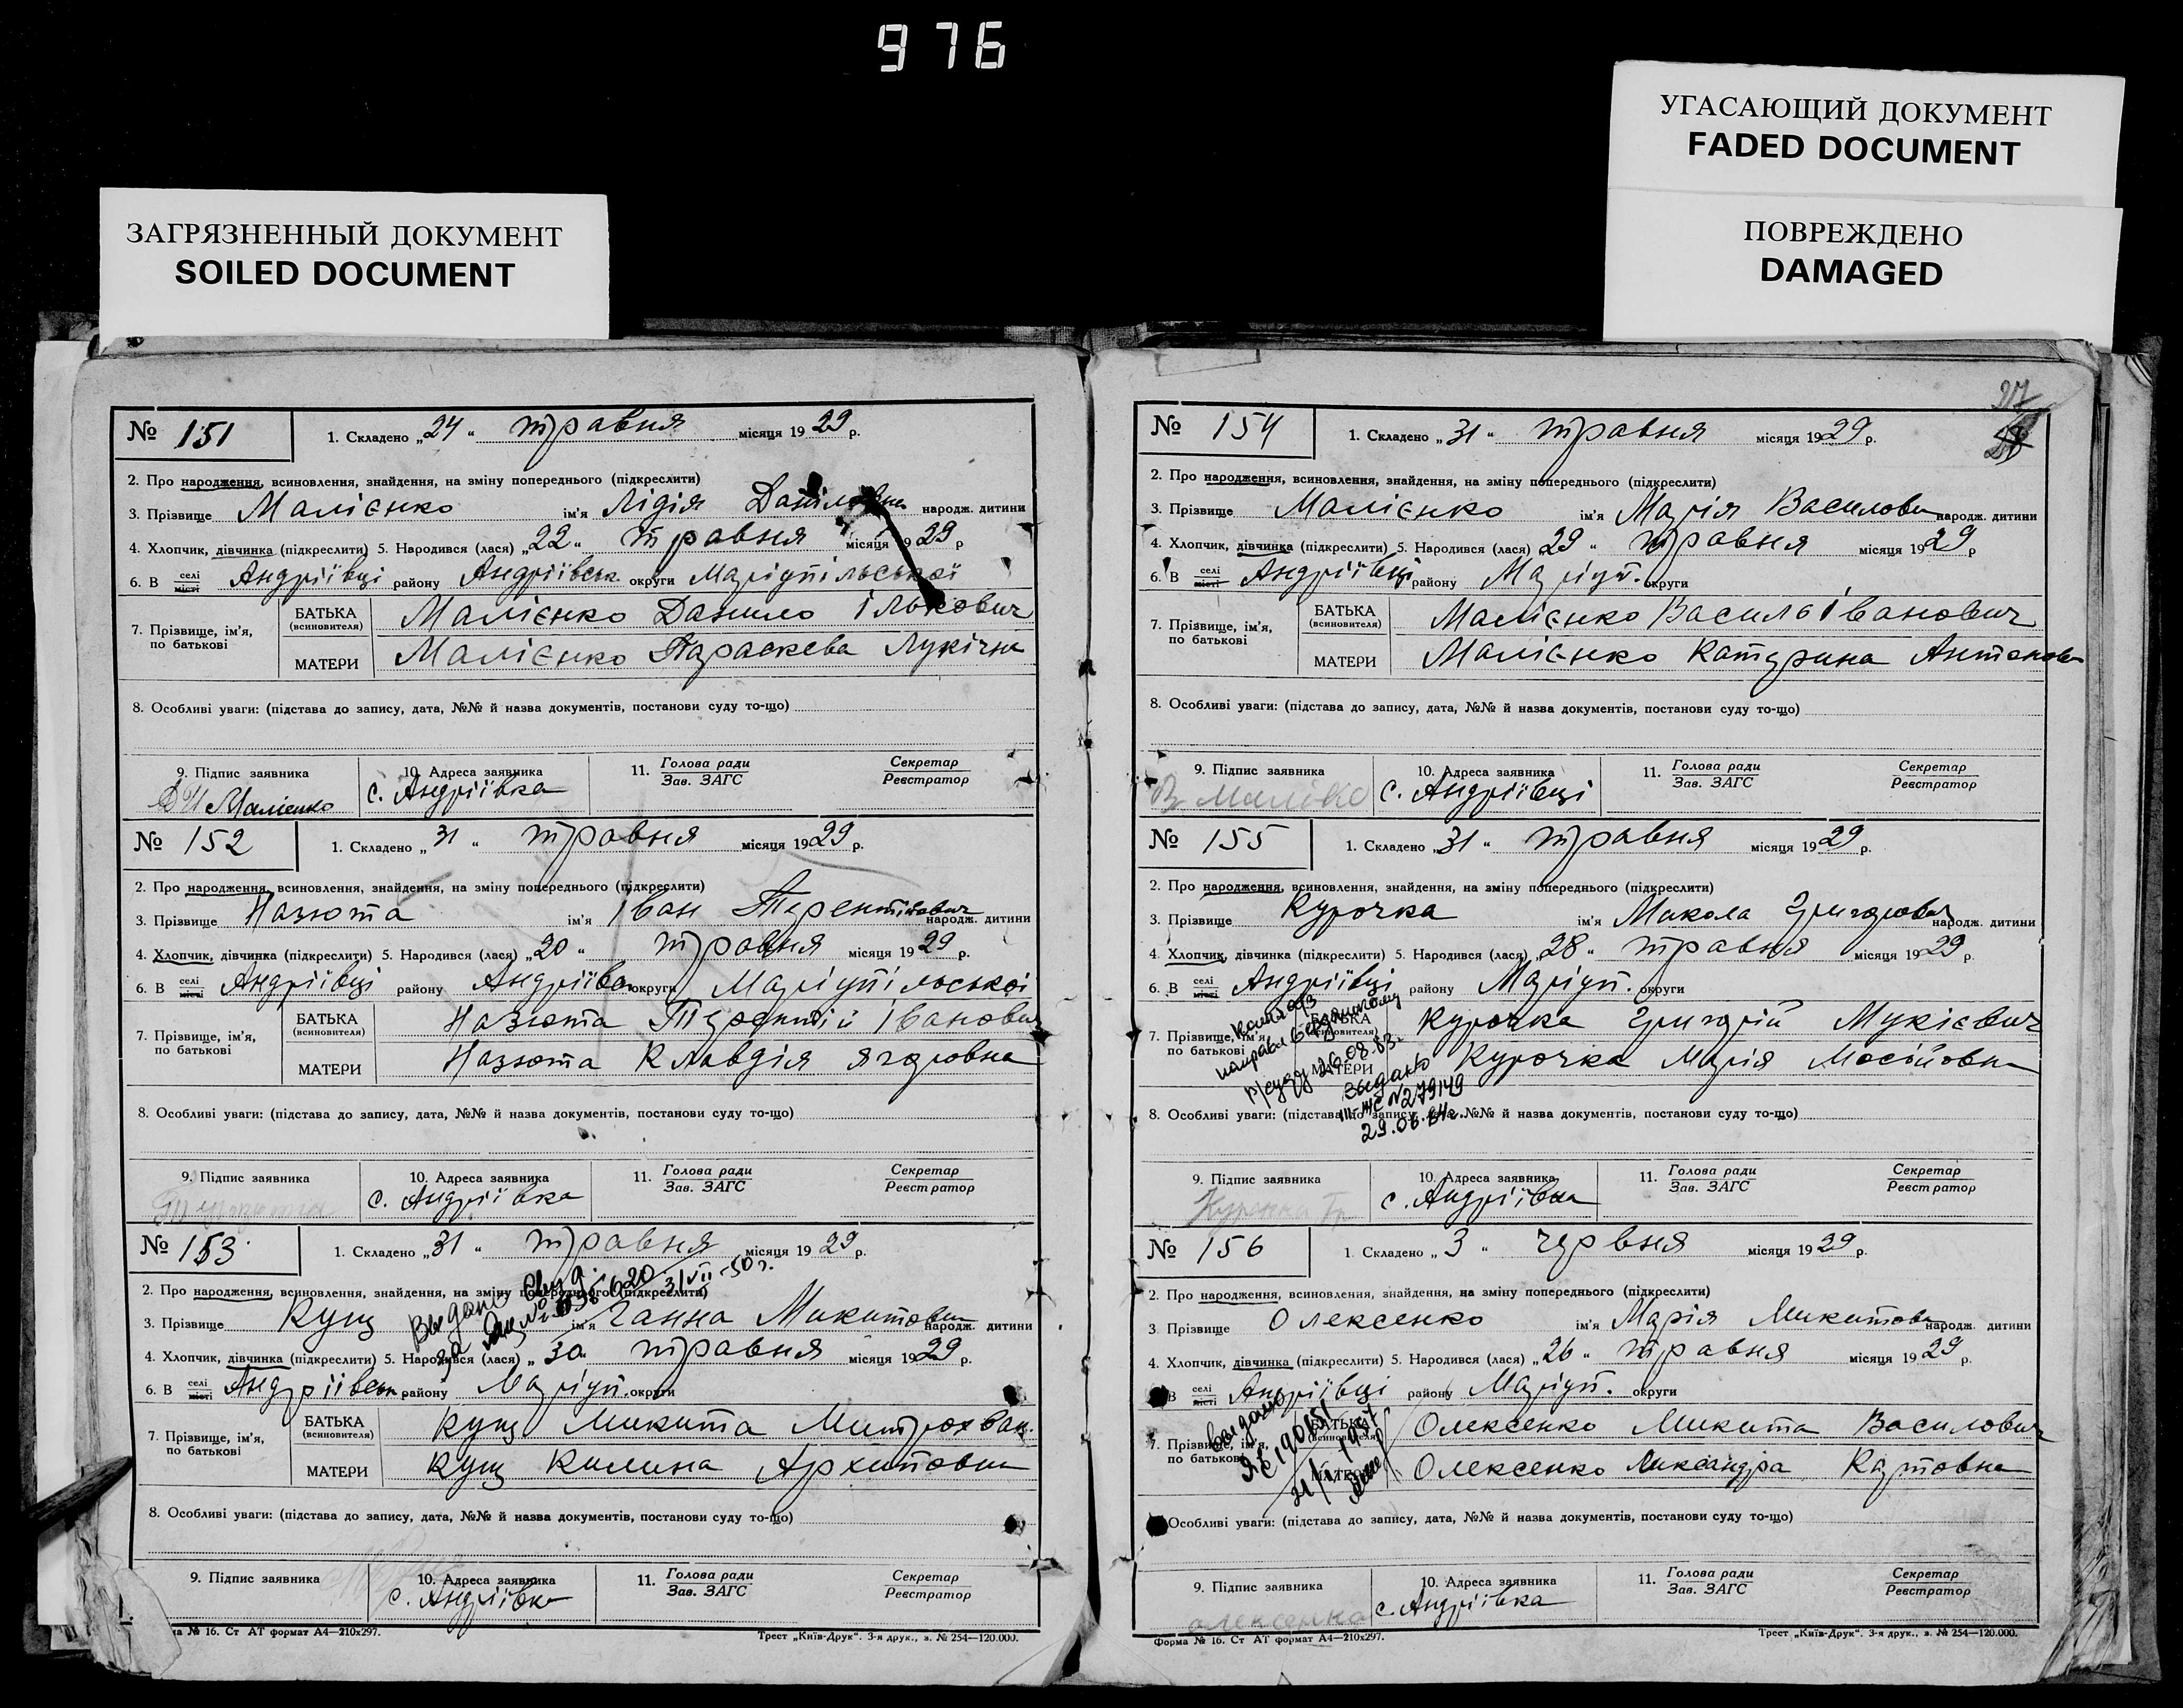 976
УГАСАЮЩИЙ ДОКУМЕНТ
FADED DOCUMENT
ЗАГРЯЗНЕННЫЙ ДОКУМЕНТ
SOILED DOCUMENT
ПОВРЕЖДЕНО
DAMAGED
№ 151 1. Складено „24“ травня місяця 1929 р.
2. Про народження, всиновлення, знайдення, на зміну попереднього (підкреслити)
3. Прізвище Малієнко ім'я Лідія Даниловна народж. дитини
4. Хлопчик, дівчинка (підкреслити) 5. Народився (лася) „22“ травня місяця 1929 р
6. В селі місті Андріївці району Андріївськ. округи Маріупільської
7. Прізвище, ім'я, по батькові
БАТЬКА (всиновителя) Малієнко Данило Ількович
МАТЕРИ Малієнко Параскева Лукічна
8. Особливі уваги: (підстава до запису, дата, №№ й назва документів, постанови суду то-що)
9. Підпис заявника 10. Адреса заявника 11. Голова ради Зав. ЗАГС Секретар Реєстратор
Д И Малієнко с. Андріївка
№ 152 1. Складено „31“ травня місяця 1929 р.
2. Про народження, всиновлення, знайдення, на зміну попереднього (підкреслити)
3. Прізвище Назюта ім'я Іван Терентійович народж. дитини
4. Хлопчик, дівчинка (підкреслити) 5. Народився (лася) „20“ травня місяця 1929 р.
6. В селі місті Андріївці району Андріївск. округи Маріупільської
7. Прізвище, ім'я, по батькові
БАТЬКА (всиновителя) Назюта Терентій Іванович
МАТЕРИ Назюта Клавдія Ягоровна
8. Особливі уваги: (підстава до запису, дата, №№ й назва документів, постанови суду то-що)
9. Підпис заявника 10. Адреса заявника 11. Голова ради Зав. ЗАГС Секретар Реєстратор
с. Андріївка
№ 153 1. Складено „31“ травня місяця 1929 р.
2. Про народження, всиновлення, знайдення, на зміну попереднього (підкреслити)
Выдано
за № 31/VII-50 г.
3. Прізвище Кущ ім'я Ганна Микитовна народж. дитини
4. Хлопчик, дівчинка (підкреслити) 5. Народився (лася) „30“ травня місяця 1929 р.
6. В селі місті Андріївськ району Маріуп. округи
7. Прізвище, ім'я, по батькові
БАТЬКА (всиновителя) Кущ Микита Митрохван.
МАТЕРИ Кущ Килина Архиповна
8. Особливі уваги: (підстава до запису, дата, №№ й назва документів, постанови суду то-що)
9. Підпис заявника 10. Адреса заявника 11. Голова ради Зав. ЗАГС Секретар Реєстратор
с. Андріївка
№ 16. Ст АТ формат А4—210х297. Трест „Київ-Друк“. 3-я друк., з. № 254—120.000.
217
№ 154 1. Складено „31“ травня місяця 1929 р.
2. Про народження, всиновлення, знайдення, на зміну попереднього (підкреслити)
3. Прізвище Малієнко ім'я Марія Василовн народж. дитини
4. Хлопчик, дівчинка (підкреслити) 5. Народився (лася) „29“ травня місяця 1929 р
6. В селі місті Андріївці району Маріуп. округи
7. Прізвище, ім'я, по батькові
БАТЬКА (всиновителя) Малієнко Василь Іванович
МАТЕРИ Малієнко Катерина Антоновн
8. Особливі уваги: (підстава до запису, дата, №№ й назва документів, постанови суду то-що)
9. Підпис заявника 10. Адреса заявника 11. Голова ради Зав. ЗАГС Секретар Реєстратор
с. Андріївці
№ 155 1. Складено „31“ травня місяця 1929 р.
2. Про народження, всиновлення, знайдення, на зміну попереднього (підкреслити)
3. Прізвище Курочка ім'я Микола Григорович народж. дитини
4. Хлопчик, дівчинка (підкреслити) 5. Народився (лася) „28“ травня місяця 1929 р.
6. В селі місті Андріївці району Маріуп. округи
7. Прізвище, ім'я, по батькові
БАТЬКА (всиновителя) Курочка Григорій Мукієвич
МАТЕРИ Курочка Марія Мосійовна
Копия а/з
направл Бердянскому
р/суду 26.08.83г
Выдано
III-ЖС № 279149
29.06.84г.
8. Особливі уваги: (підстава до запису, дата, №№ й назва документів, постанови суду то-що)
9. Підпис заявника 10. Адреса заявника 11. Голова ради Зав. ЗАГС Секретар Реєстратор
Курочка Гр с. Андріївка
№ 156 1. Складено „3“ червня місяця 1929 р.
2. Про народження, всиновлення, знайдення, на зміну попереднього (підкреслити)
3. Прізвище Олексенко ім'я Марія Микитовн народж. дитини
4. Хлопчик, дівчинка (підкреслити) 5. Народився (лася) „26“ травня місяця 1929 р.
В селі місті Андріївці району Маріуп. округи
7. Прізвище, ім'я, по батькові
БАТЬКА (всиновителя) Олексенко Микита Василович
МАТЕРИ Олексенко Лександра Карповна
Выдано
Особливі уваги: (підстава до запису, дата, №№ й назва документів, постанови суду то-що)
9. Підпис заявника 10. Адреса заявника 11. Голова ради Зав. ЗАГС Секретар Реєстратор
олексенко с. Андріївка
Форма № 16. Ст АТ формат А4—210х297. Трест „Київ-Друк“. 3-я друк., з. № 254—120.000.